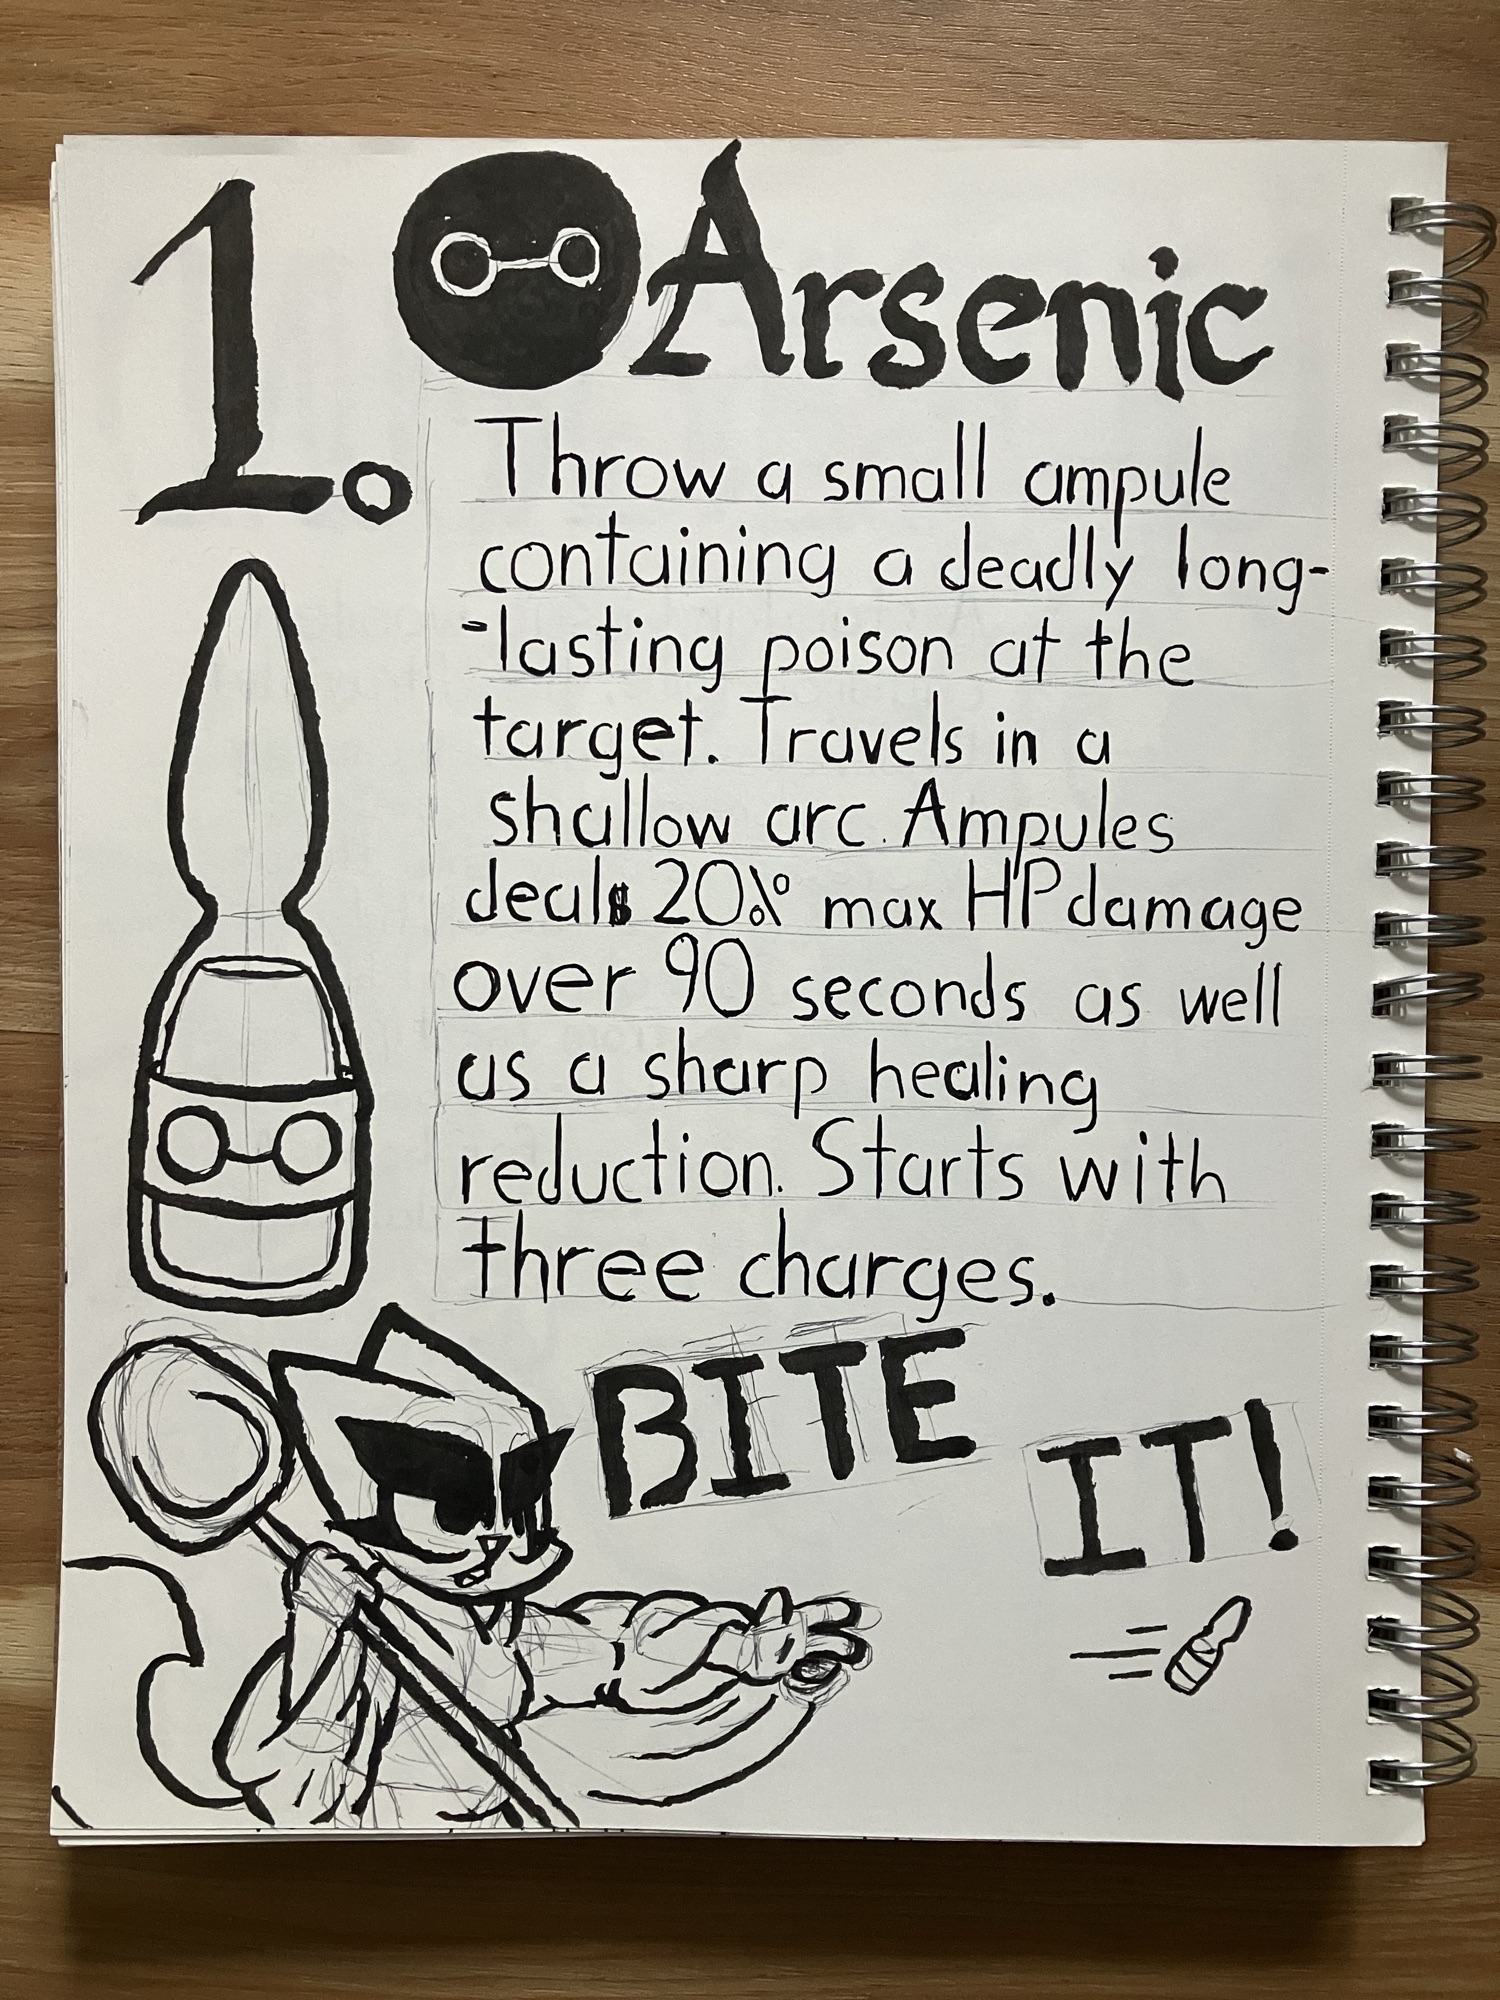 1. Arsenic
Throw a small ampule
containing a deadly long-
-lasting poison at the
target. Travels in a
shallow arc. Ampules
deals 20% max HP damage
over 90 seconds as well
as a sharp healing
reduction. Starts with
three charges.
BITE
IT!